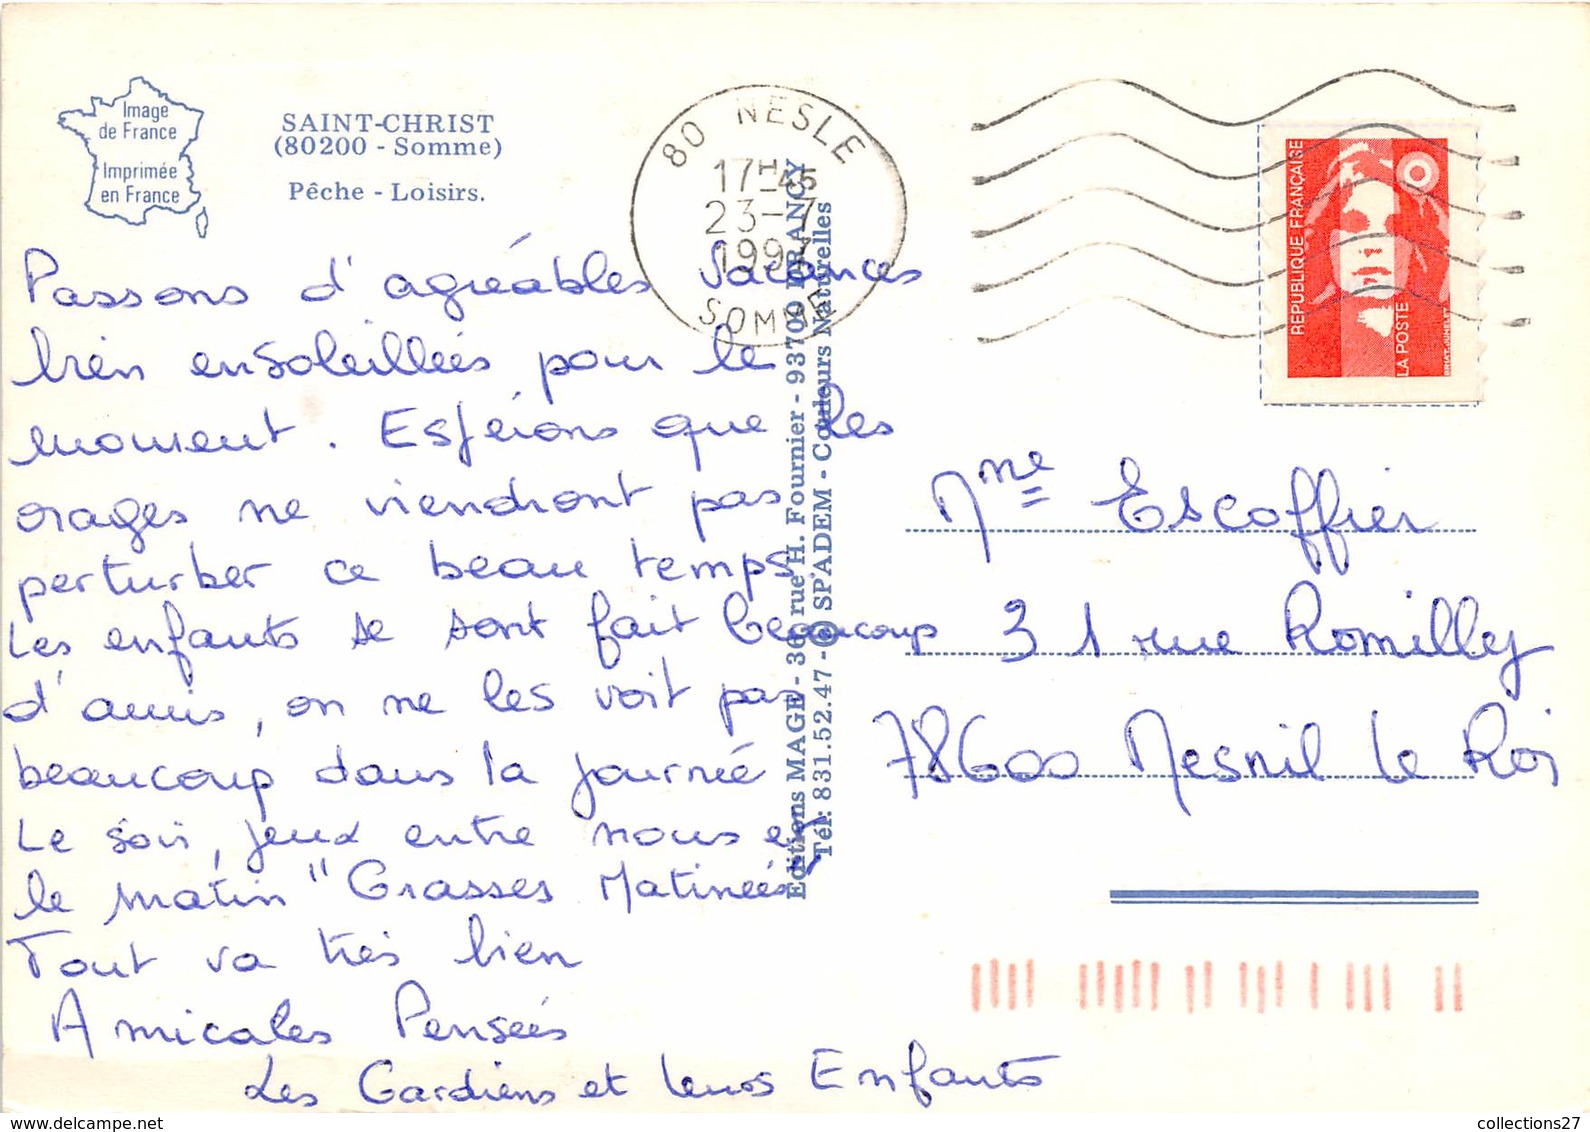 Image
de France
Imprimée
en France
SAINT-CHRIST
(80200 - Somme)
Pêche - Loisirs.
80 NESLE
17H45
23-7
1997
SOMME
REPUBLIQUE FRANÇAISE
LA POSTE
Passons d'agréables vacances
bien ensoleillées pour le
moment. Espérons que les
orages ne viendront pas
perturber ce beau temps.
Les enfants se sont fait beaucoup
d'amis, on ne les voit pas
beaucoup dans la journée
Le soir, jeux entre nous et
le matin "Grasses Matinées"
Tout va très bien
Amicales Pensées
Les Gardiens et leurs Enfants
Editions MAGE - 36, rue H. Fournier - 93700 DRANCY
Tél: 831.52.47 - © SPADEM - Couleurs Naturelles
Mme Escoffier
31 rue Romilly
78600 Mesnil le Roi
collections27